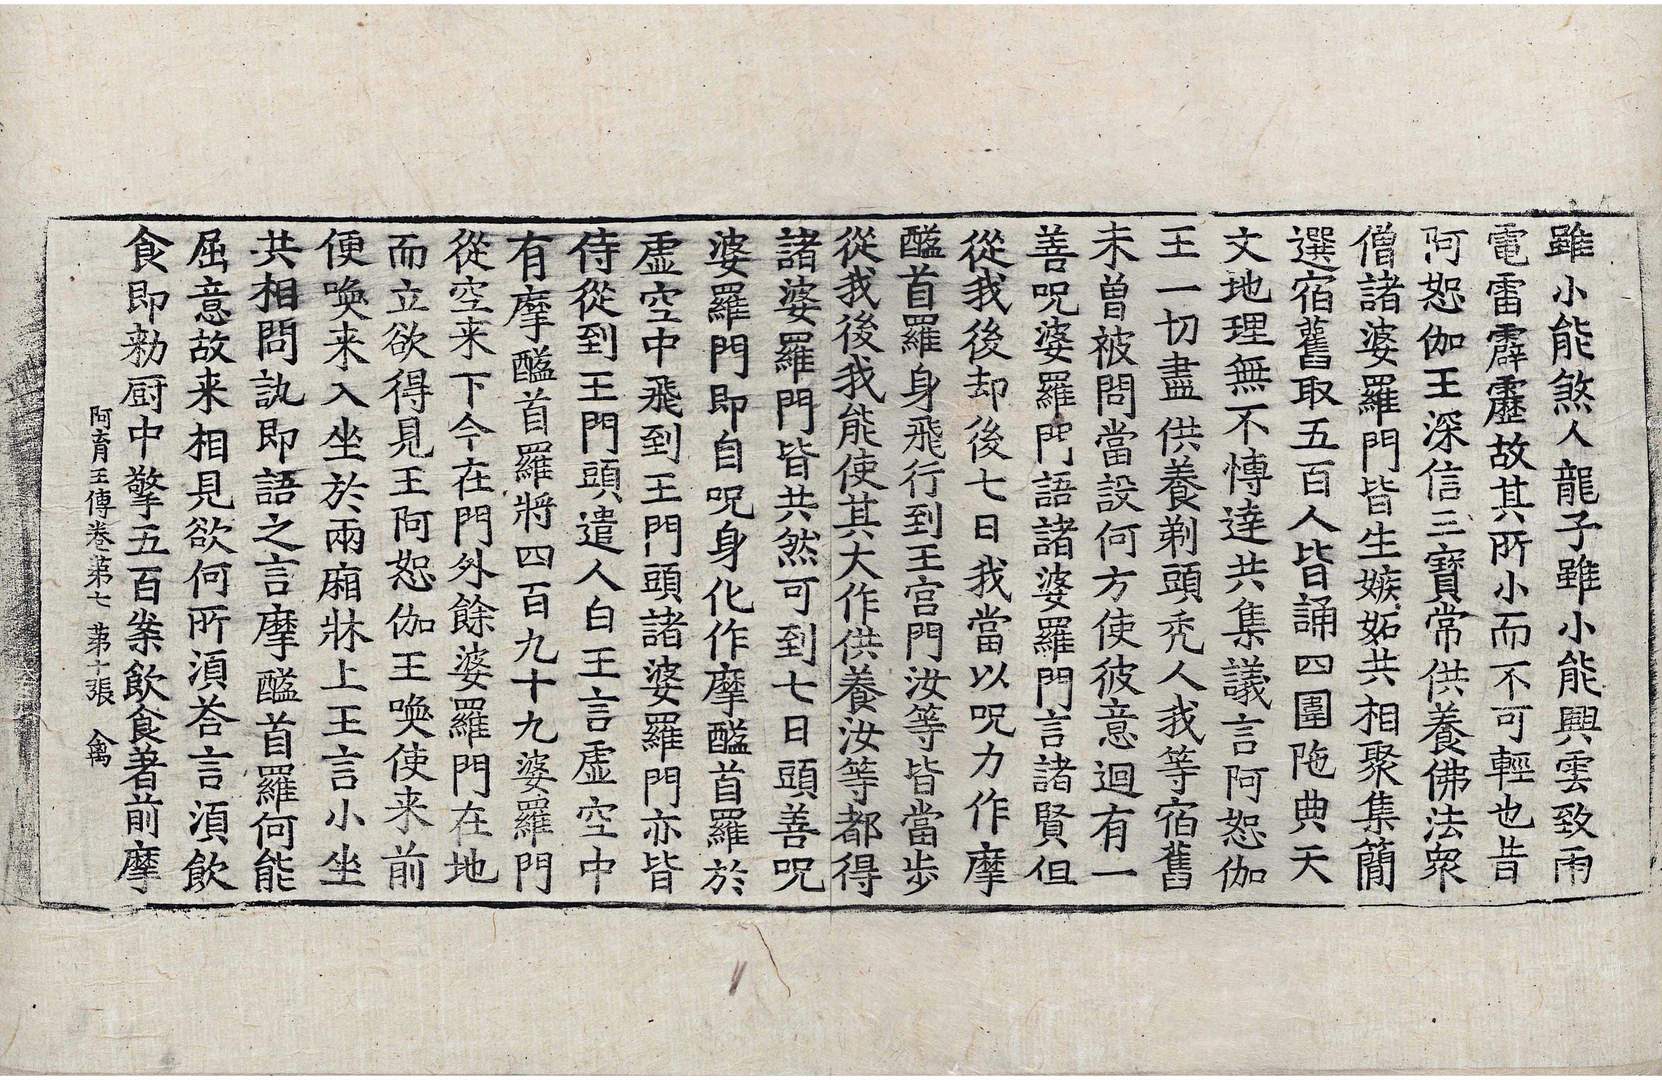 雖小能煞人龍子雖小能興雲致雨
電雷霹靂故其所小而不可輕也昔
阿恕伽王深信三寶常供養佛法衆
僧諸婆羅門皆生嫉妬共相聚集簡
選宿舊取五百人皆誦四圍陁典天
文地理無不慱達共集議言阿恕伽
王一切盡供養剃頭禿人我等宿舊
未曽被問當設何方使彼意迴有一
善呪婆羅門語諸婆羅門言諸賢但
從我後却後七日我當以呪力作摩
醯首羅身飛行到王宮門汝等皆當步
從我後我能使其大作供養汝等都得
諸婆羅門皆共然可到七日頭善呪
婆羅門即自呪身化作摩醯首羅於
虛空中飛到王門頭諸婆羅門亦皆
侍從到王門頭遣人白王言虛空中
有摩醯首羅將四百九十九婆羅門
從空来下今在門外餘婆羅門在地
而立欲得見王阿恕伽王喚使来前
便喚来入坐於兩廂牀上王言小坐
共相問訊即語之言摩醯首羅何能
屈意故来相見欲何所湏荅言湏飮
食即勑厨中擎五百案飮食著前摩
阿育王傳卷第七 第十張 禽